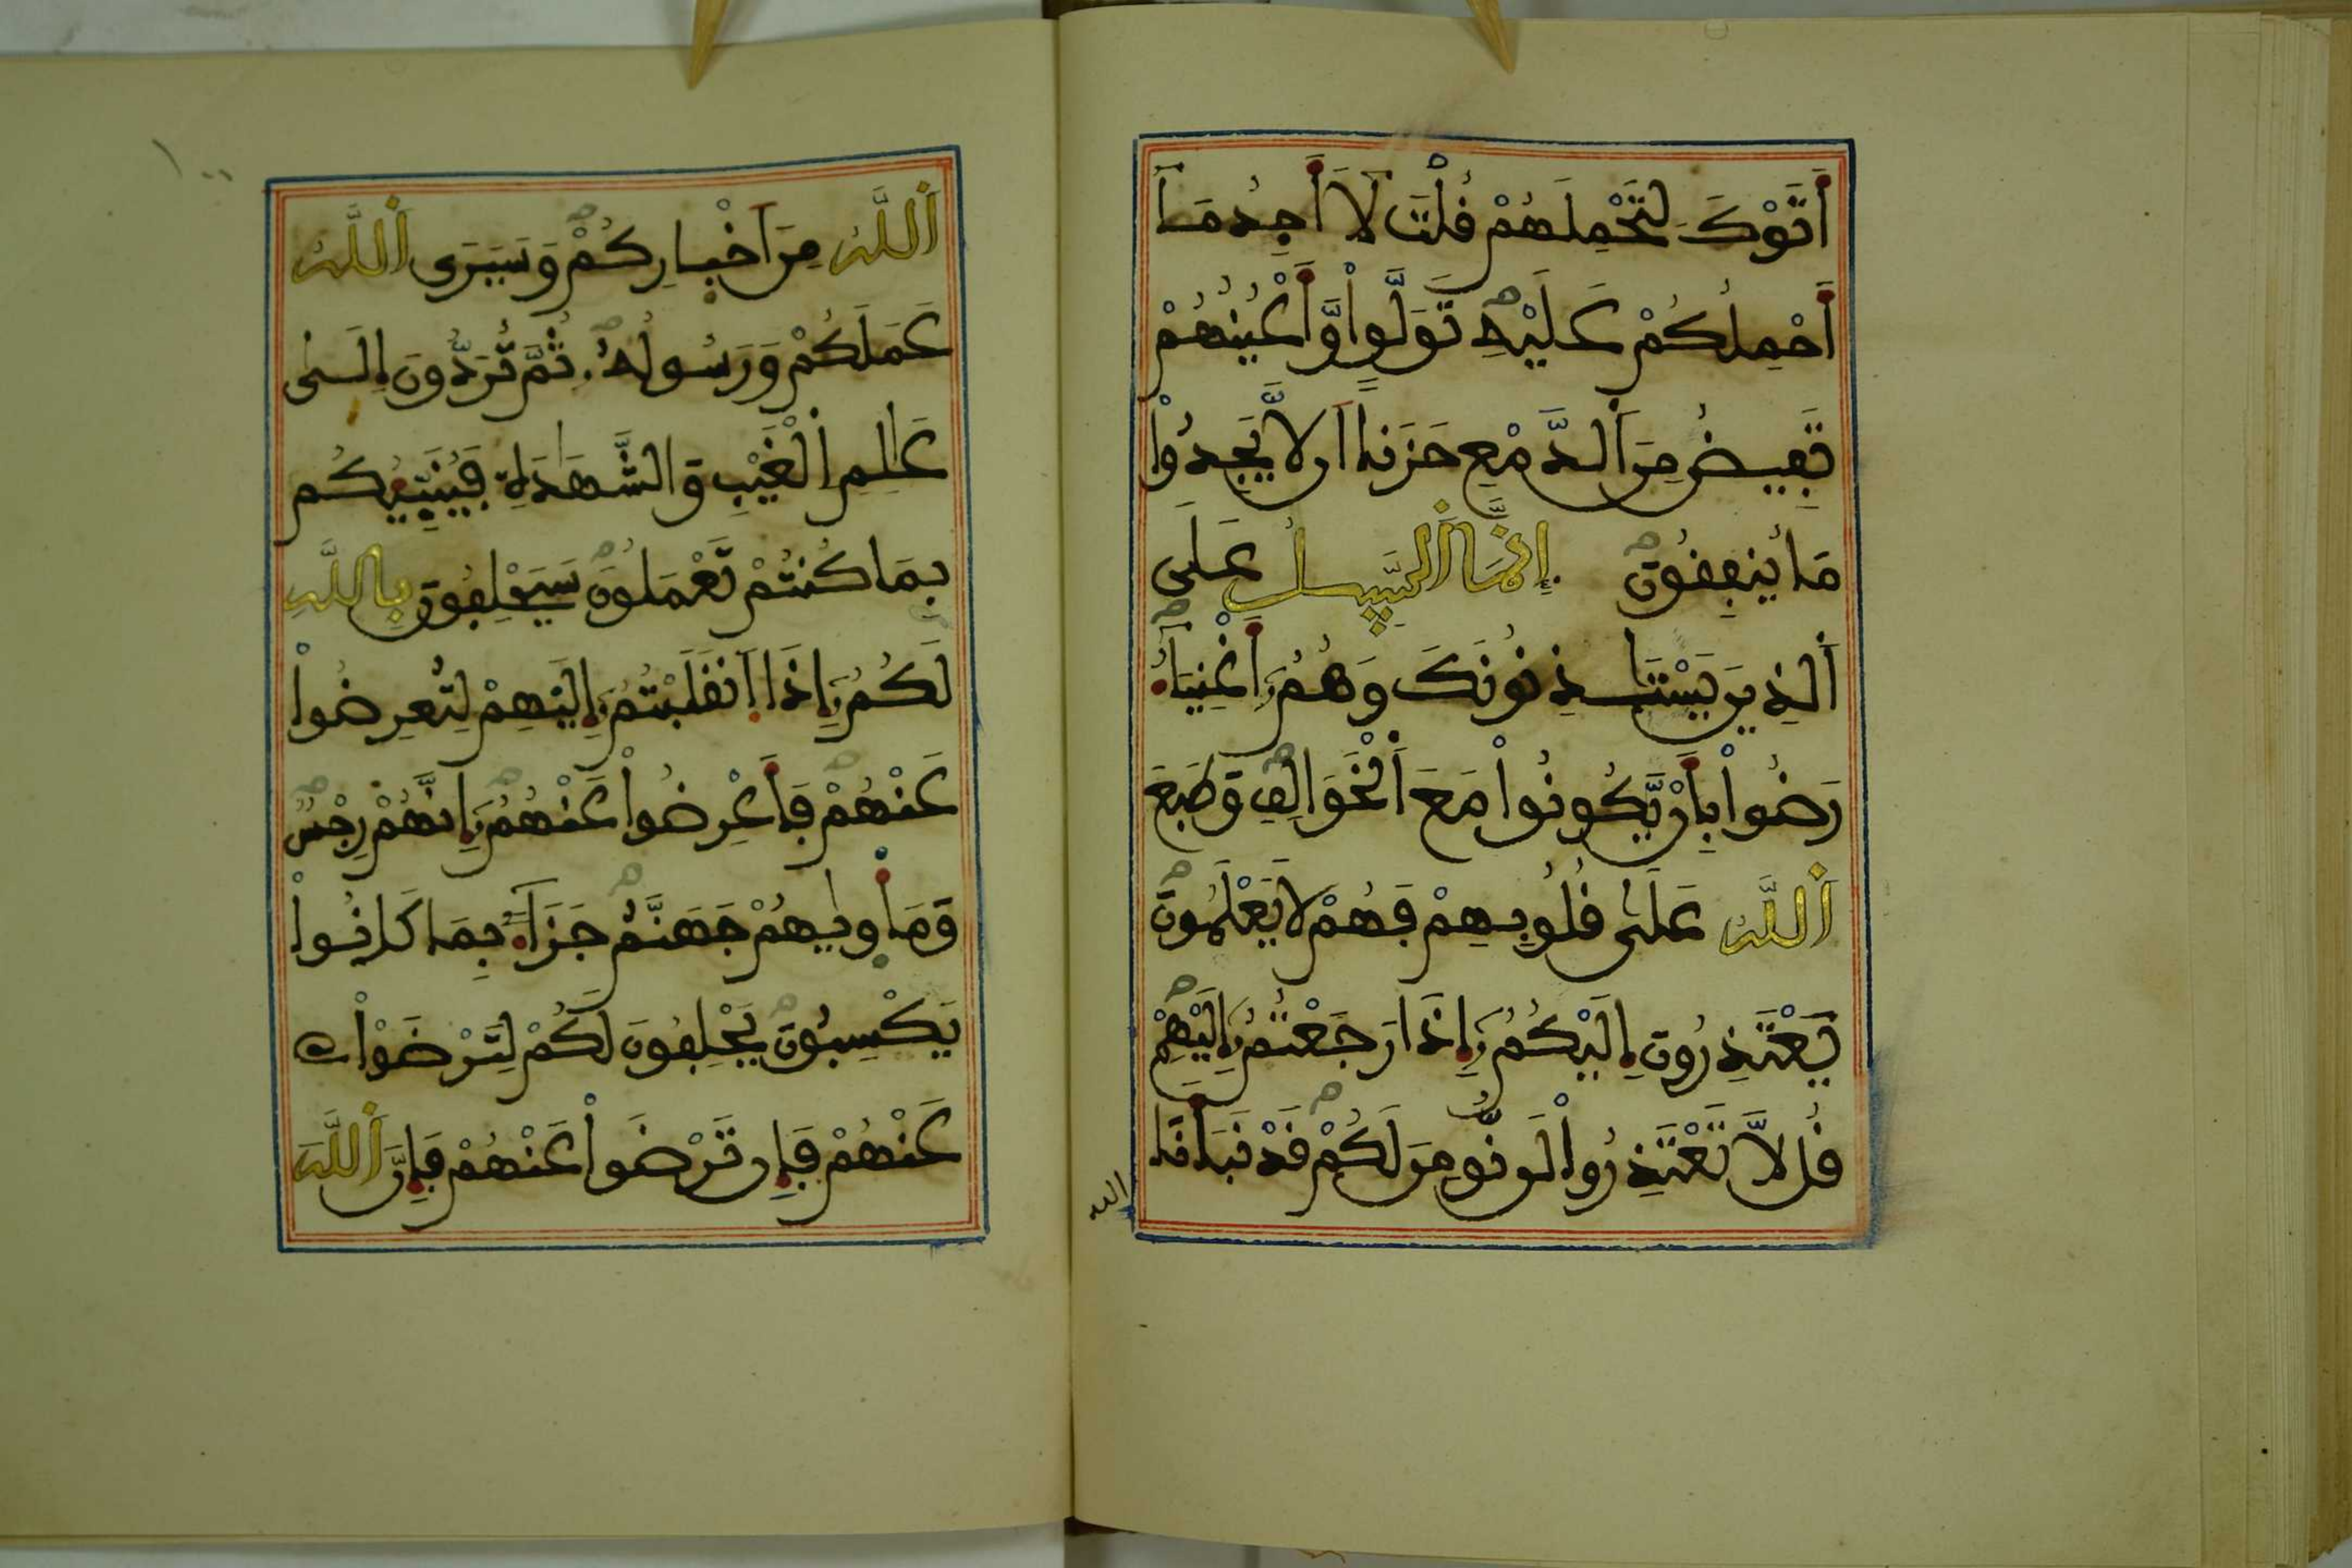 أَتَوْكَ لِتَحْمِلَهُمْ قُلْتَ لَا أَجِدُ مَا
أَحْمِلُكُمْ عَلَيْهِ تَوَلَّواْ وَّأَعْيُنُهُمْ
تَفِيضُ مِنَ اَلدَّمْعِ حَزَناً اَلَّا يَجِدُواْ
مَا يُنفِقُونَ إِنَّمَا اَلسَّبِيلُ عَلَى
اَلذِينَ يَسْتَٰذِنُونَكَ وَهُمُۥٓ أَغْنِيَآءُ
رَضُواْ بِأَنْ يَّكُونُواْ مَعَ اَلْخَوَالِفِ وَطَبَعَ
اَللَّهُ عَلَىٰ قُلُوبِهِمْ فَهُمْ لَا يَعْلَمُونَ
يَعْتَذِرُونَ إِلَيْكُمُۥٓ إِذَا رَجَعْتُمُۥٓ إِلَيْهِمْ
قُل لَّا تَعْتَذِرُواْ لَن نُّومِنَ لَكُمْ قَدْ نَبَّأَنَا
الله
١٠٠
اَللَّهُ مِنَ اَخْبارِكُمْ وَسَيَرَى اَللَّهُ
عَمَلَكُمْ وَرَسُولُهُۥ ثُمَّ تُرَدُّونَ إِلَىٰ
عَٰلِمِ اِلْغَيْبِ وَالشَّهَٰدَةِ فَيُنَبِّئُكُم
بِمَا كُنتُمْ تَعْمَلُونَ سَيَحْلِفُونَ بِاللَّهِ
لَكُمُۥٓ إِذَا اَنقَلَبْتُمُۥٓ إِلَيْهِمْ لِتُعْرِضُواْ
عَنْهُمْ فَأَعْرِضُواْ عَنْهُمُۥٓ إِنَّهُمْ رِجْسٌ
وَمَأْوٰيهُمْ جَهَنَّمُ جَزَآءً بِمَا كَانُواْ
يَكْسِبُونَ يَحْلِفُونَ لَكُمْ لِتَرْضَوْاْ
عَنْهُمْ فَإِن تَرْضَواْ عَنْهُمْ فَإِنَّ اَللَّهَ